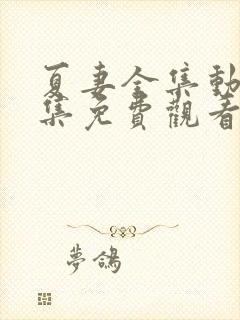 夏妻全集動
集免費觀看
夢鴿